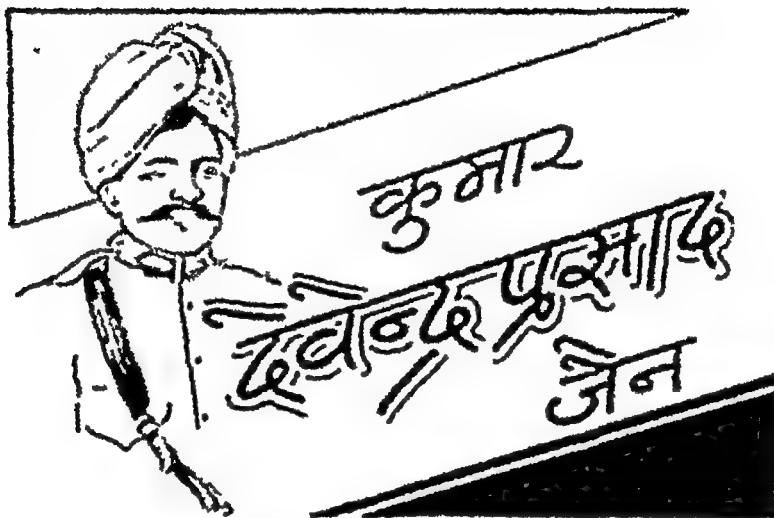 कुमार
देवेन्द्र प्रसाद
जैन